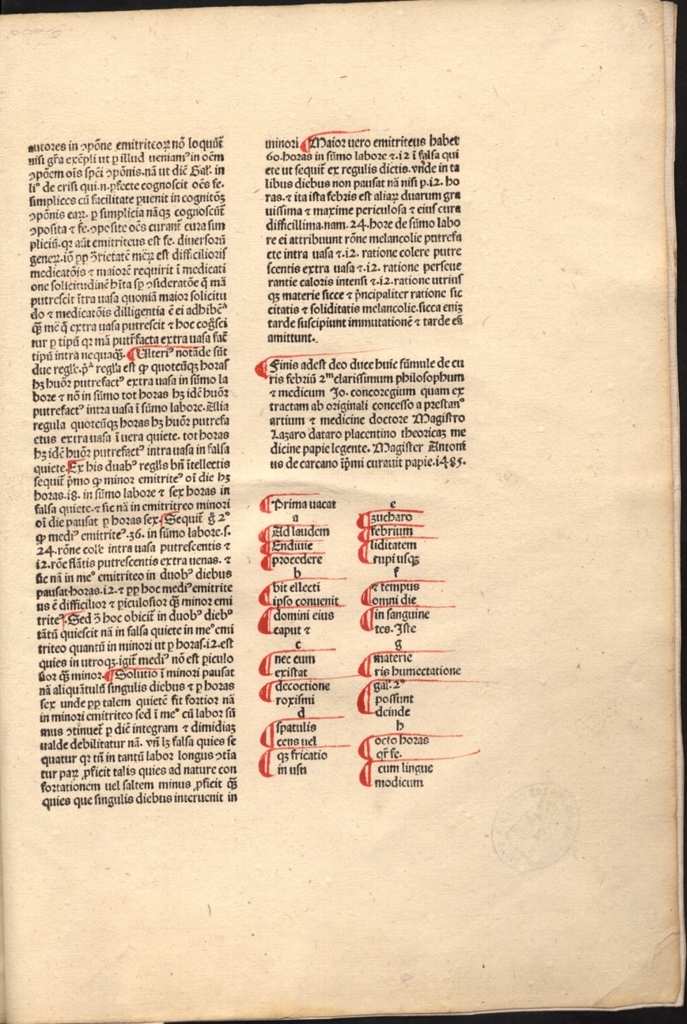 autores in ɔpōne emitriteoꝝ nō loquūt
nisi gr̄a exēpli ut ꝑ illud veniamꝰ in oēm
ɔpōem oīs sp̄ei ɔpōnis. nā ut dic̄ Gal. in
liᵒ de crisi qui. n. ꝑfecte cognoscit oēs fe.
simplices cū facilitate ꝑuenit in cognitōꝫ
ɔpōnis eaꝝ. ꝑ simplicia nāqꝫ cognoscūt̄
ɔposita ⁊ fe. ɔposite oēs curant̄ cura sim
pliciū. qꝛ aūt emitriceus est fe. diuersorū
generꝝ. iō ꝓp ꝯrietatē mērꝝ est difficilioris
medicatōis ⁊ maiorē requirit ī medicati
one solicitudinē hīta sꝑ ɔsideratōe ꝙ mā
putrescit ītra uasa quoniā maior solicitu
do ⁊ medicatōis diligentia ē ei adhibēᵃ
ꝙ̄ mē ꝙ extra uasa putrescit ⁊ hoc cogs̄ci
tur ꝑ tipū qꝛ mā putrefacta extra uasa fac̄
tipū intra nequaqꝫ. Ulteriꝰ notāde sūt
due regl̄e. pᵃ regl̄a est ꝙ quotcūqꝫ horas
hꝫ huōꝛ putrefactꝰ extra uasa in sūmo la
bore ⁊ nō in sūmo tot horas hꝫ idē huōꝛ
putrefactꝰ intra uasa ī sūmo labore. Alia
regula quotcūqꝫ horas hꝫ huōꝛ putrefa
ctus extra uasa ī uera quiete. tot horas
hꝫ idē huōꝛ putrefactꝰ intra uasa in falsa
quiete. Ex his duabꝰ regl̄is bn̄ itellectis
sequit̄ pͥmo ꝙ minor emitriteꝰ oī die hꝫ
horas .18. in sūmo labore ⁊ sex horas in
falsa quiete. ⁊ sic nā in emitritreo minori
oī die pausat ꝑ horas sex. Sequit̄ ꝙ̄ 2ᵒ
ꝙ mediꝰ emitriteꝰ .36. in sūmo labore. s.
24. rōne cole intra uasa putrescentis ⁊
12. rōe fl̄atis putrescentis extra uenas. ⁊
sic nā in meᵒ emitriteo in duobꝰ diebus
pausat horas .12. ⁊ ꝓp hoc mediꝰ emitrite
us ē difficilior ⁊ piculosior ꝙ̄ minor emi
triteꝰ. Sed ꝯ hoc obicit̄ in duobꝰ diebꝰ
tātū quiescit nā in falsa quiete in meᵒ emi
triteo quantū in minori ut ꝑ horas .12. est
quies in utroqꝫ. igit̄ mediꝰ nō est piculo
sior ꝙ̄ minor. Solutio ī minori pausat
nā aliquātulū singulis diebus ⁊ ꝑ horas
sex unde ꝓp talem quietē fit fortior nā
in minori emitriteo sed ī meᵒ cū labor sū
mus ɔtinuet̄ ꝑ diē integram ⁊ dimidiaꝫ
ualde debilitatur nā. vn̄ lꝫ falsa quies se
quatur qꝛ tn̄ in tantū labor longus ɔtīa
tur paꝝ ꝓficit talis quies ad nature con
fortationem uel saltem minus ꝓficit ꝙ̄
quies que singulis diebus interuenit in
minori Maior uero emitriteus habet
60. horas in sūmo labore ⁊ .12 ī falsa qui
ete ut sequit̄ ex regulis dictis. vnde in ta
libus diebus non pausat nā nisi ꝑ .12. ho
ras. ⁊ ita ista febris est aliaꝝ duarum gra
uissima ⁊ maxime periculosa ⁊ eius cura
difficillima. nam .24. hore de sūmo labo
re ei attribuunt̄ rōne melancolie putrefa
cte intra uasa ⁊ .12. ratione colere putre
scentis extra uasa ⁊ .12. ratione perseue
rantie caloris intensi ⁊ .12. ratione utrius
qꝫ materie sicce ⁊ pͥncipaliter ratione sic
citatis ⁊ soliditatis melancolie. sicca eniꝫ
tarde suscipiunt immutationē ⁊ tarde eā
amittunt.
Finis adest deo duce huic sūmule de cu
ris febriū 2ᵐ clarissimum philosophum
⁊ medicum Jo. concoregium quam ex
tractam ab originali concesso a prestanᵗ
artium ⁊ medicine doctore Magistro
Lazaro dataro placentino theoricaꝫ me
dicine papie legente. Magister Antoni
us de carcano īpm̄i curauit papie. 1485.
Prima uacat
a
Ad laudem
Endiuie
procedere
b
bit ellecti
ipso conuenit
domini eius
caput ⁊
c
nec cum
existat
decoctione
roxismi
d
spatulis
cens uel
qꝫ fricatio
in usu
e
zucharo
febrium
liditatem
rupi usqꝫ
f
⁊ tempus
omni die
in sanguine
tes. Iste
g
materie
ris humectatione
gal. 2ᵒ
possunt
deinde
h
octo horas
qr̄ fe.
cum lingue
modicum